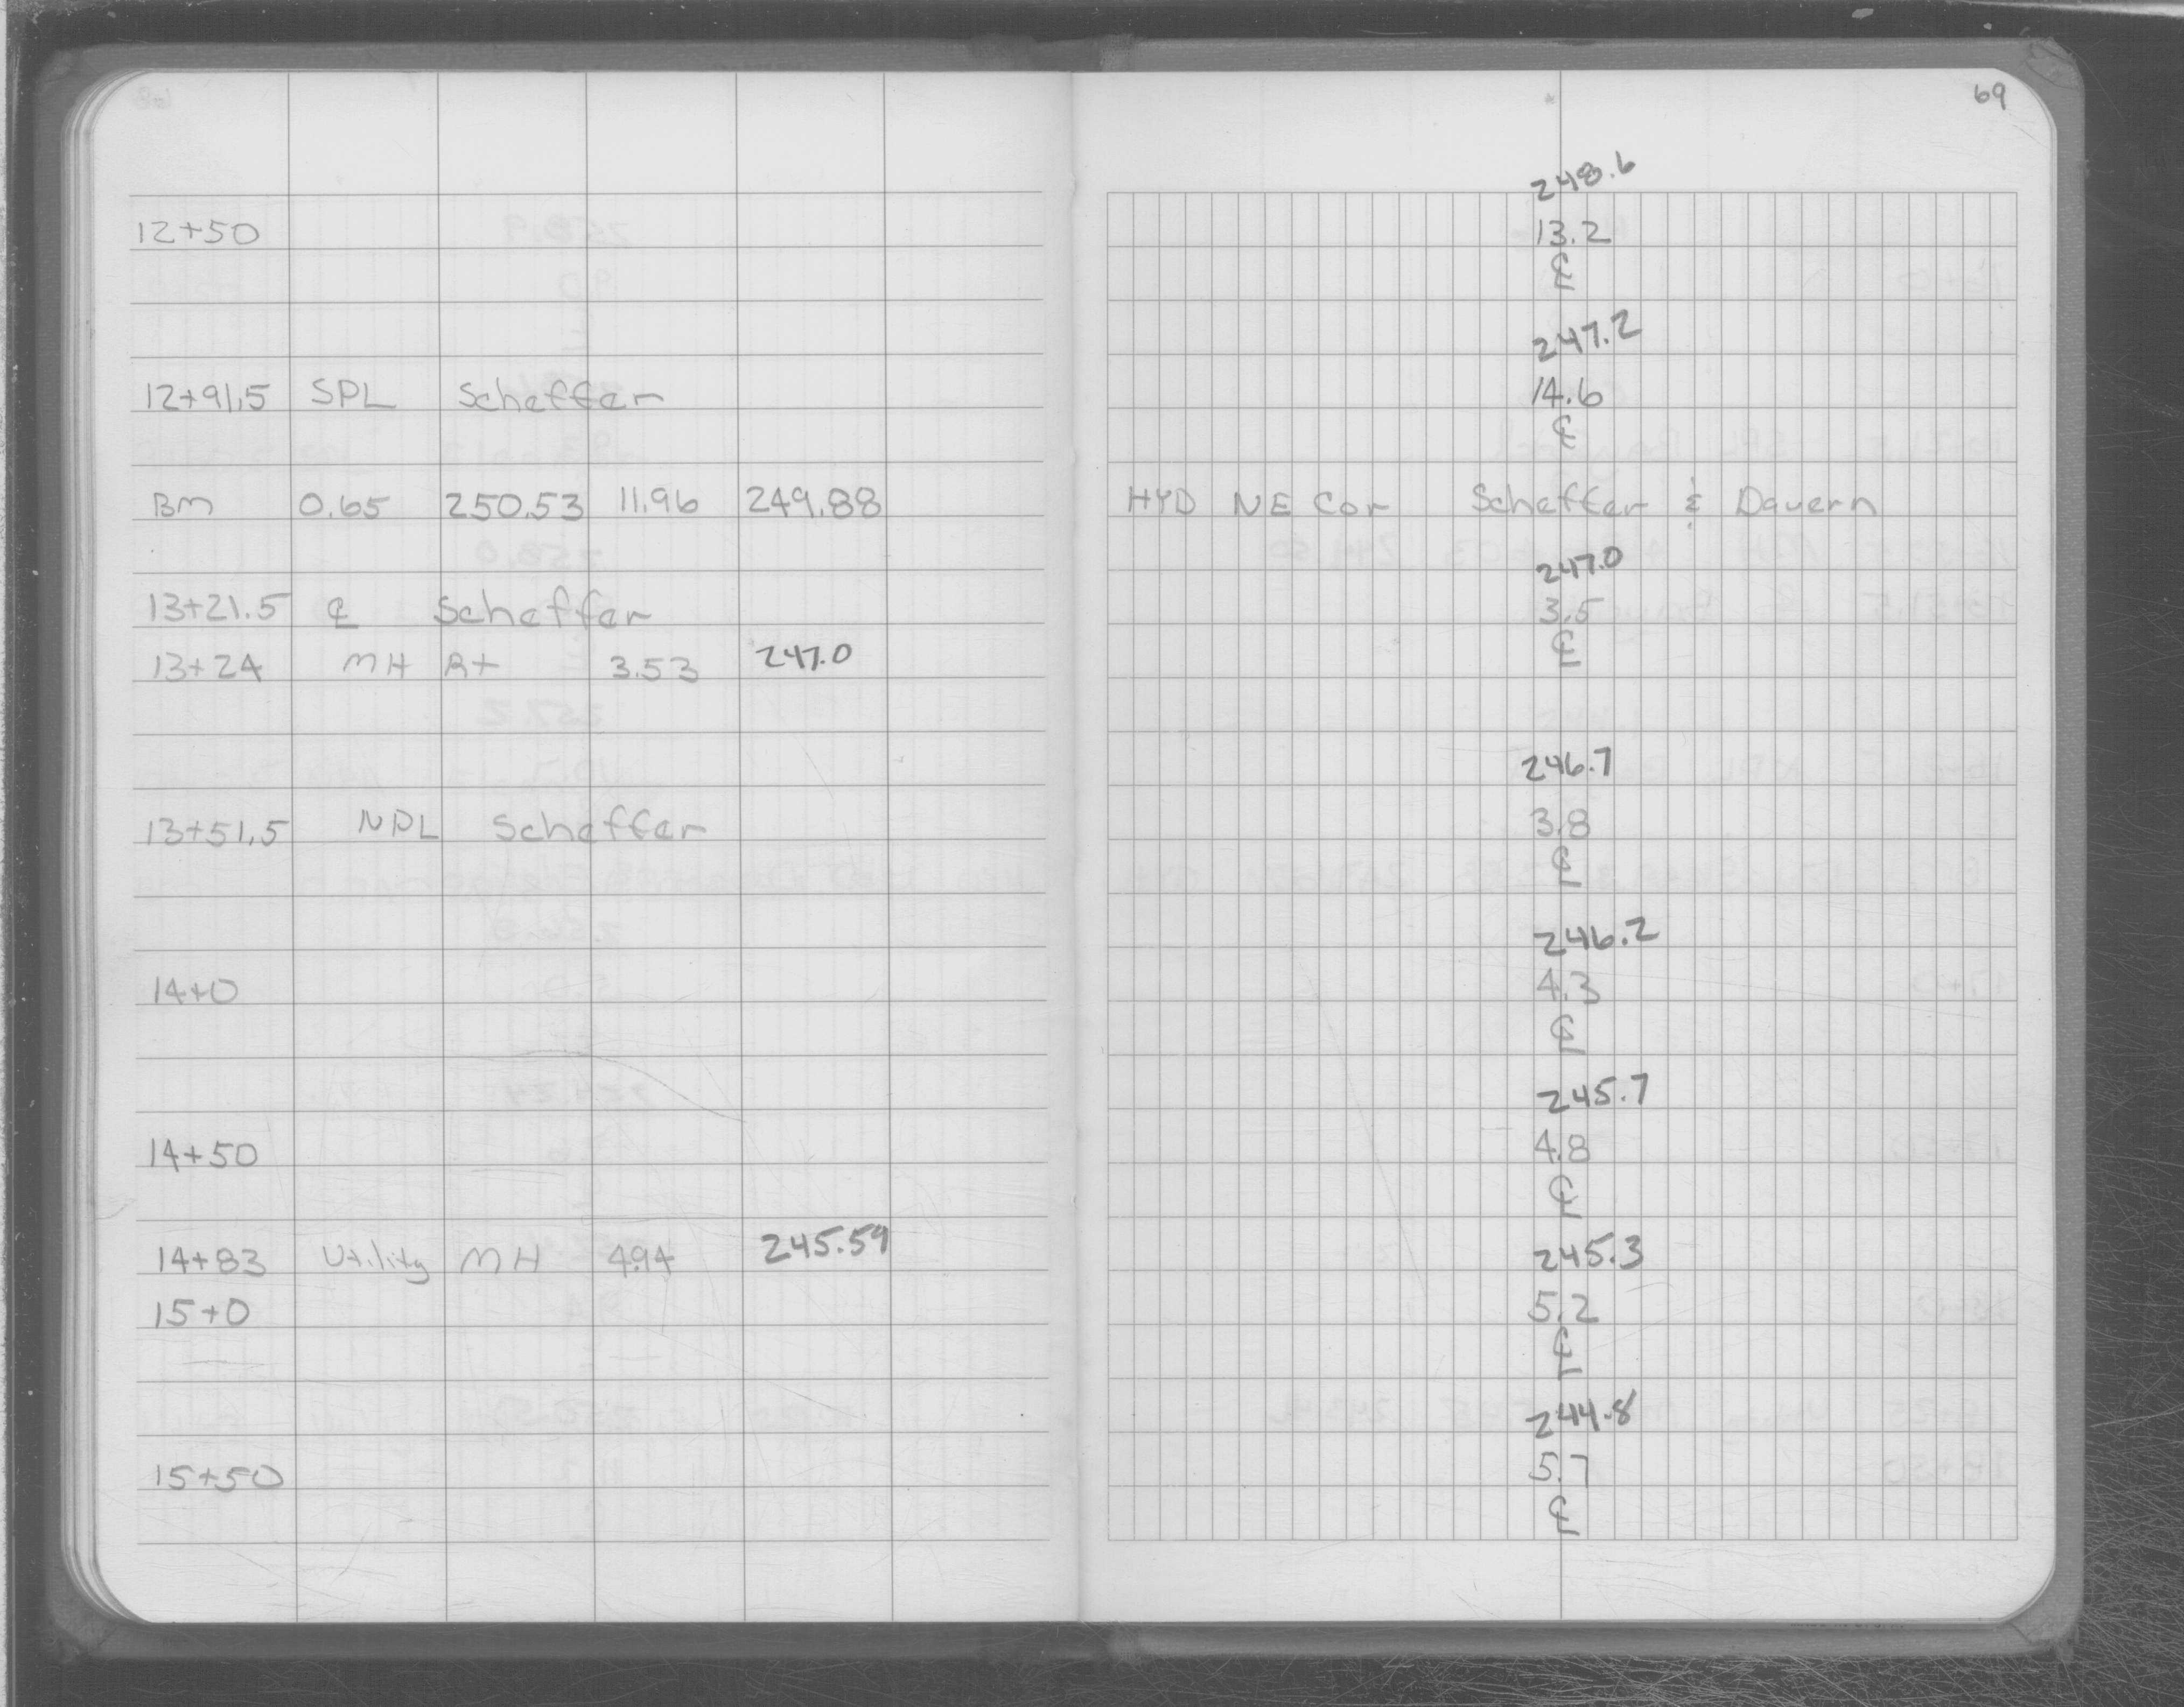 69
248.6
12+50 13.2
℄
247.2
12+91.5 SPL Scheffer 14.6
℄
BM 0.65 250.53 11.96 249.88 HYD NE Cor Scheffer & Davern
247.0
13+21.5 ℄ Scheffer 3.5
13+24 MH Rt 3.53 247.0 ℄
246.7
13+51.5 NPL Scheffer 3.8
℄
246.2
14+0 4.3
℄
245.7
14+50 4.8
℄
14+83 Utility MH 4.94 245.59 245.3
15+0 5.2
℄
244.8
15+50 5.7
℄